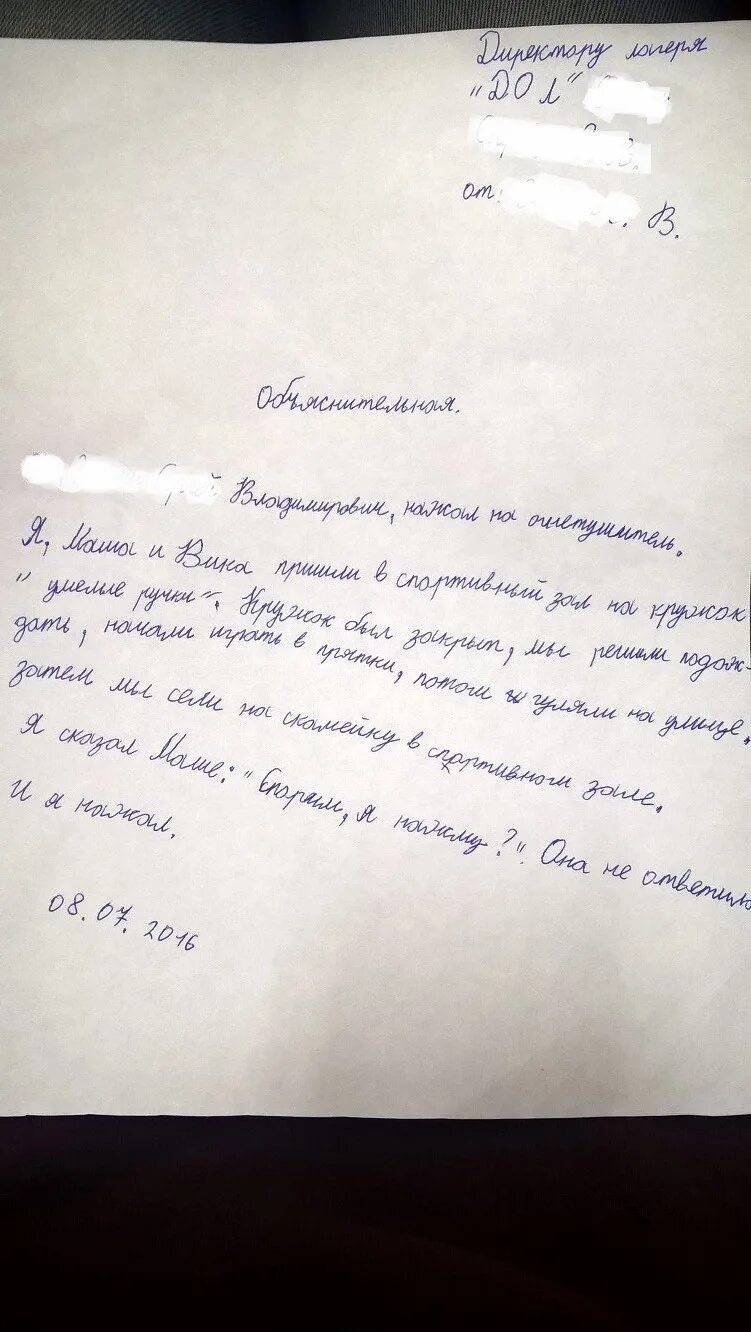 Директору лагеря
"ДОЛ"
от:
В.
Объяснительная.
Владимирович, нажал на огнетушитель.
Я, Маша и Вика пришли в спортивный зал на кружок
"умелые ручки". Кружок был закрыт, мы решили подож-
дать, начали играть в прятки, потом гуляли на улице,
затем мы сели на скамейку в спортивном зале.
Я сказал Маше: "Спорим, я нажму?". Она не ответила
И я нажал.
08.07.2016